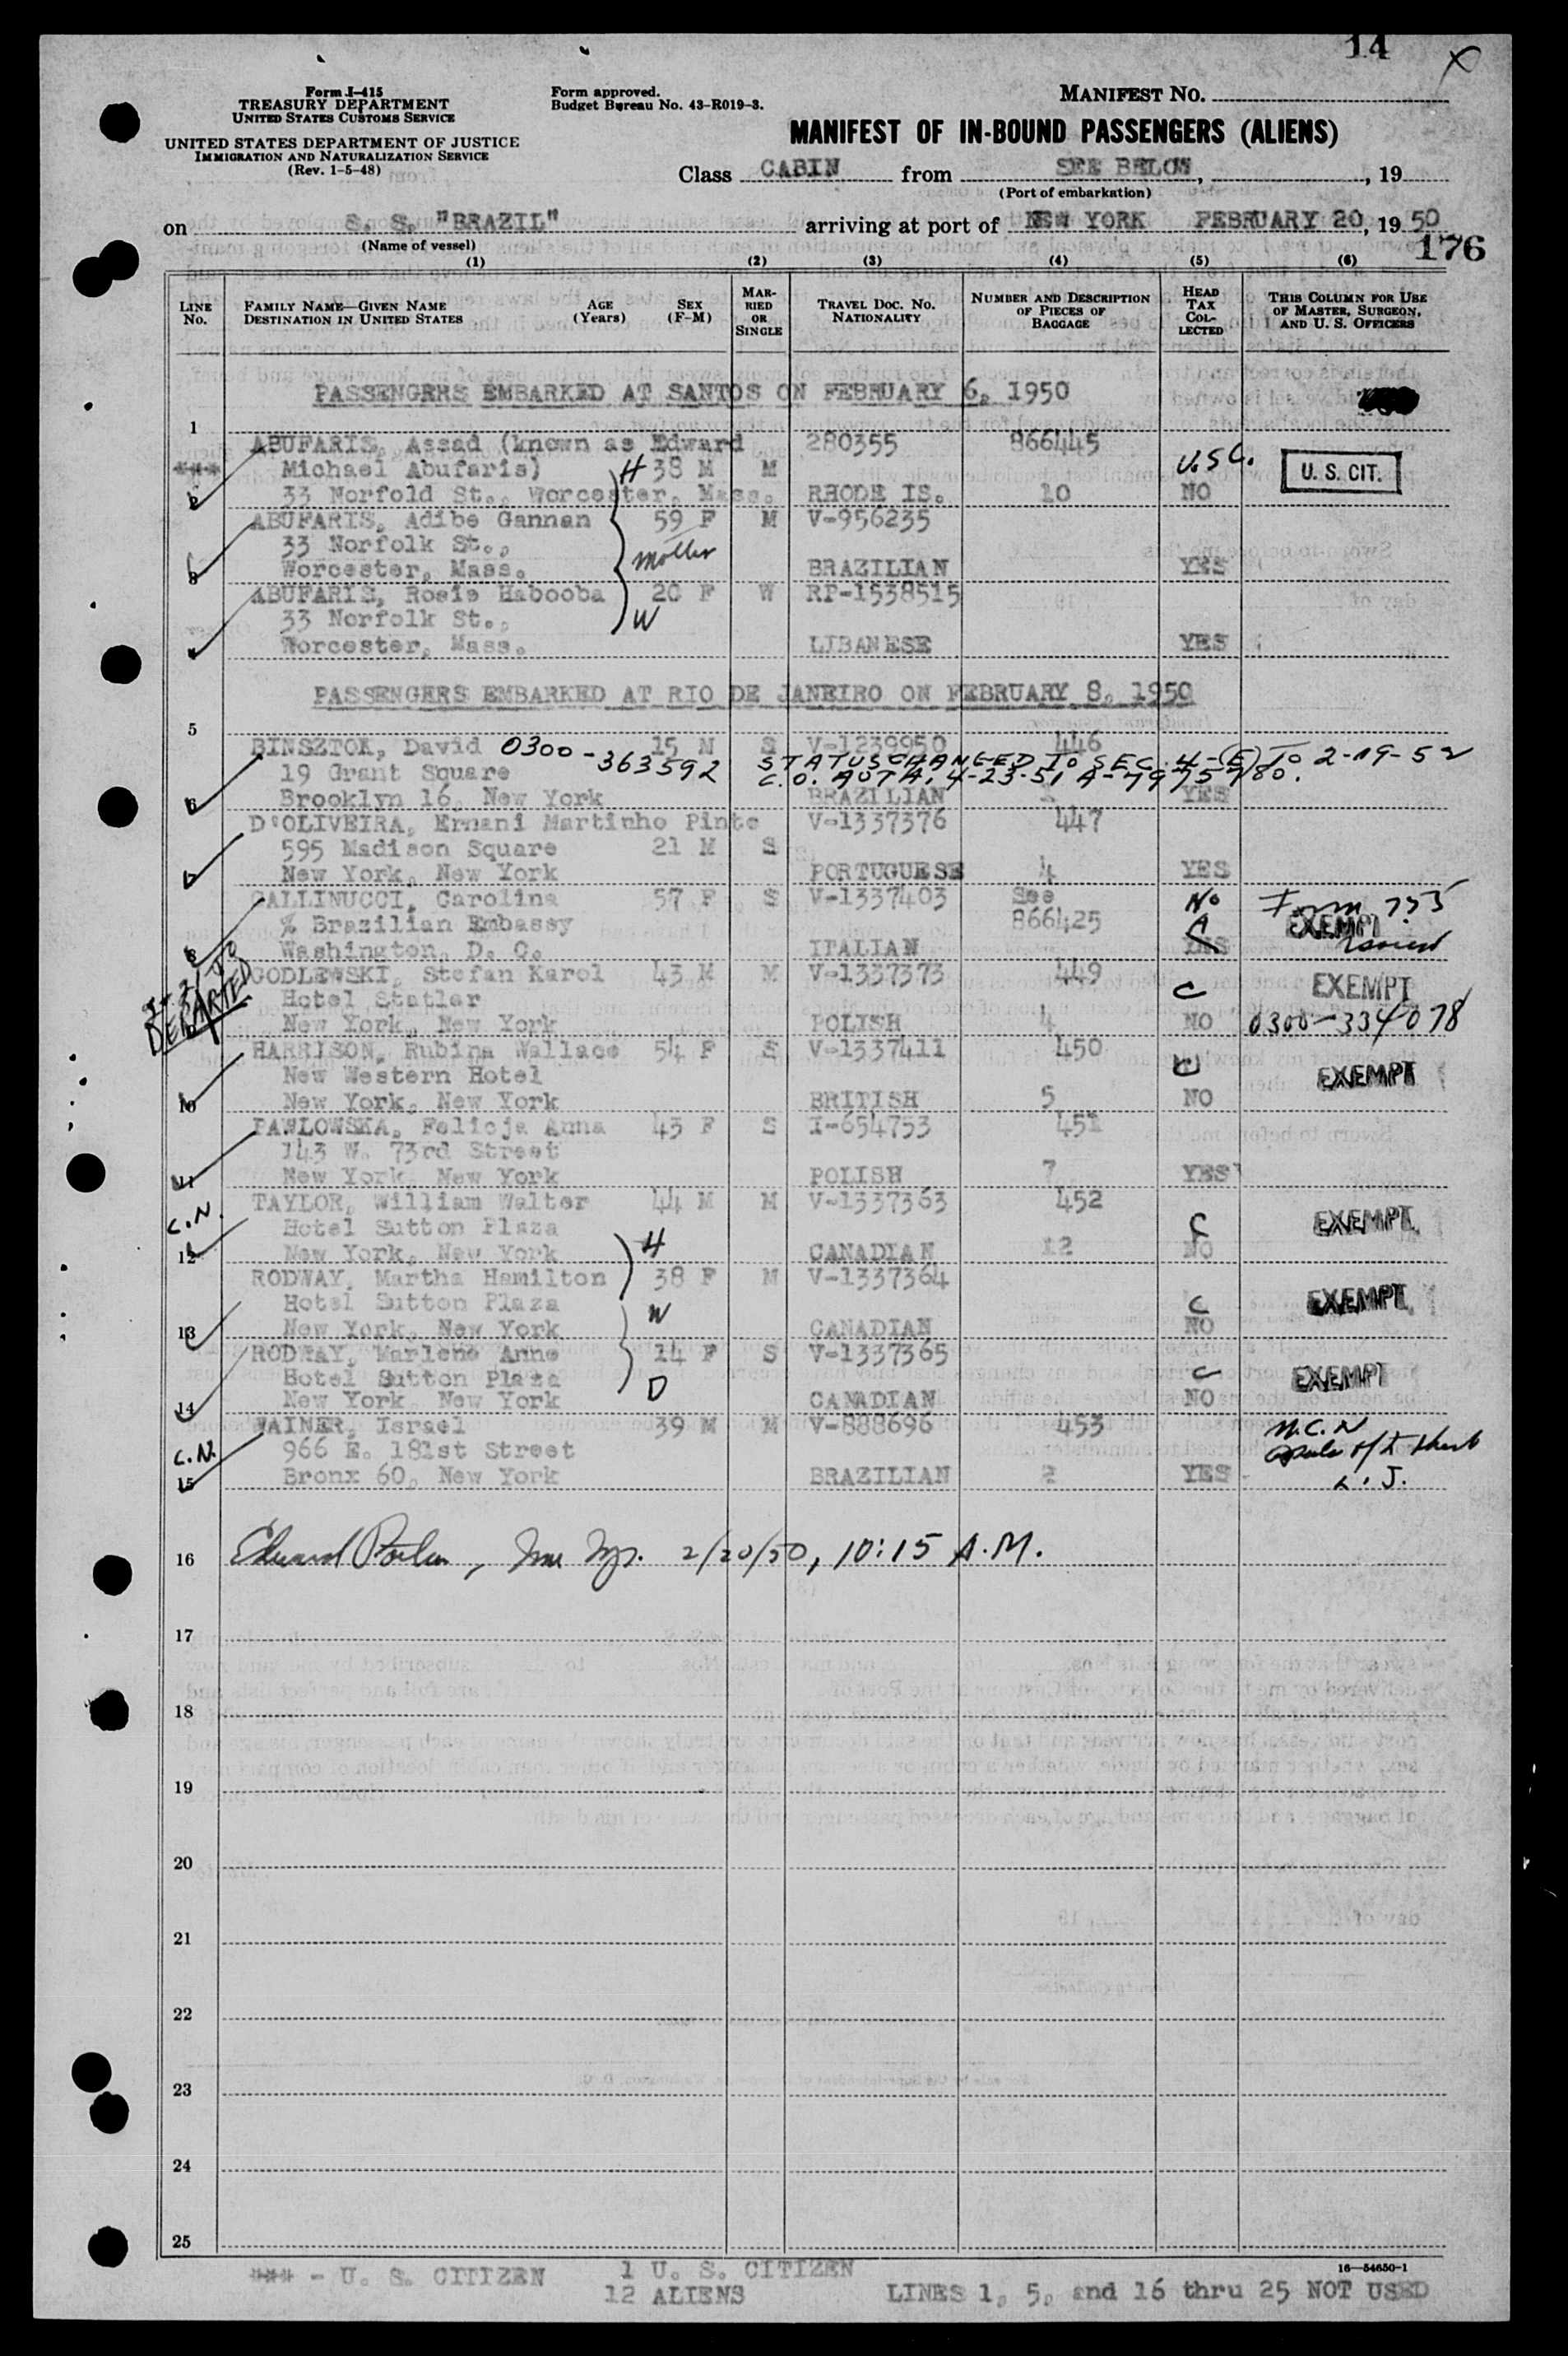 14
X
Form I-415
TREASURY DEPARTMENT
UNITED STATES CUSTOMS SERVICE
UNITED STATES DEPARTMENT OF JUSTICE
IMMIGRATION AND NATURALIZATION SERVICE
(Rev. 1-5-48)
Form approved.
Budget Bureau No. 43-R019-3.
MANIFEST NO.
MANIFEST OF IN-BOUND PASSENGERS (ALIENS)
Class CABIN from SEE BELOW, , 19
(Port of embarkation)
on S. S. "BRAZIL" arriving at port of NEW YORK FEBRUARY 20, 1950
(Name of vessel)
176
(1) (2) (3) (4) (5) (6)
LINE No. FAMILY NAME—GIVEN NAME DESTINATION IN UNITED STATES AGE (Years) SEX (F-M) MARRIED OR SINGLE TRAVEL DOC. NO. NATIONALITY NUMBER AND DESCRIPTION OF PIECES OF BAGGAGE HEAD TAX COLLECTED THIS COLUMN FOR USE OF MASTER, SURGEON, AND U. S. OFFICERS
PASSENGERS EMBARKED AT SANTOS ON FEBRUARY 6, 1950
1
ABUFARIS, Assad (known as Edward 280355 866445
*** Michael Abufaris) H 38 M M U.S.C. U. S. CIT.
2 33 Norfold St., Worcester, Mass. RHODE IS. 10 NO
ABUFARIS, Adibe Gannan 59 F M V-956235
33 Norfolk St., Mother
3 Worcester, Mass. BRAZILIAN YES
ABUFARIS, Rosie Habooba 20 F W RP-1538515
33 Norfolk St., W
4 Worcester, Mass. LIBANESE YES
PASSENGERS EMBARKED AT RIO DE JANEIRO ON FEBRUARY 8, 1950
5
BINSZTOK, David 0300-363592 15 M S V-1239950 446
19 Grant Square STATUS CHANGED TO SEC. 4-(E) TO 2-19-52
C.O. AUTH. 4-23-51
6 Brooklyn 16, New York BRAZILIAN YES
D'OLIVEIRA, Ernani Martinho Pinto V-1337376 447
595 Madison Square 21 M S
7 New York, New York PORTUGUESE 4 YES
GALLINUCCI, Carolina 57 F S V-1337403 See No Form 755
% Brazilian Embassy 866425 A EXEMPT
8 Washington, D. C. ITALIAN YES issued
GODLEWSKI, Stefan Karol 43 M M V-1337373 449
DEPARTED
Hotel Statler C EXEMPT
New York, New York POLISH 4 NO 0300-334078
HARRISON, Rubina Wallace 54 F S V-1337411 450
New Western Hotel C EXEMPT
10 New York, New York BRITISH 5 NO
PAWLOWSKA, Felicja Anna 43 F S I-654753 451
143 W. 73rd Street
11 New York, New York POLISH 7 YES
TAYLOR, William Walter 44 M M V-1337363 452
C.N. Hotel Sutton Plaza C EXEMPT
12 New York, New York H CANADIAN 12 NO
RODWAY, Martha Hamilton 38 F M V-1337364
Hotel Sutton Plaza W C EXEMPT
13 New York, New York CANADIAN NO
RODWAY, Marlene Anne 14 F S V-1337365
Hotel Sutton Plaza D C EXEMPT
14 New York, New York CANADIAN NO
WAINER, Israel 39 M M V-888696 453
C.N. 966 E. 181st Street
15 Bronx 60, New York BRAZILIAN 2 YES L. J.
16 Edward 2/20/50, 10:15 A.M.
17
18
19
20
21
22
23
24
25
16—54650-1
*** - U. S. CITIZEN 1 U. S. CITIZEN
12 ALIENS LINES 1, 5, and 16 thru 25 NOT USED